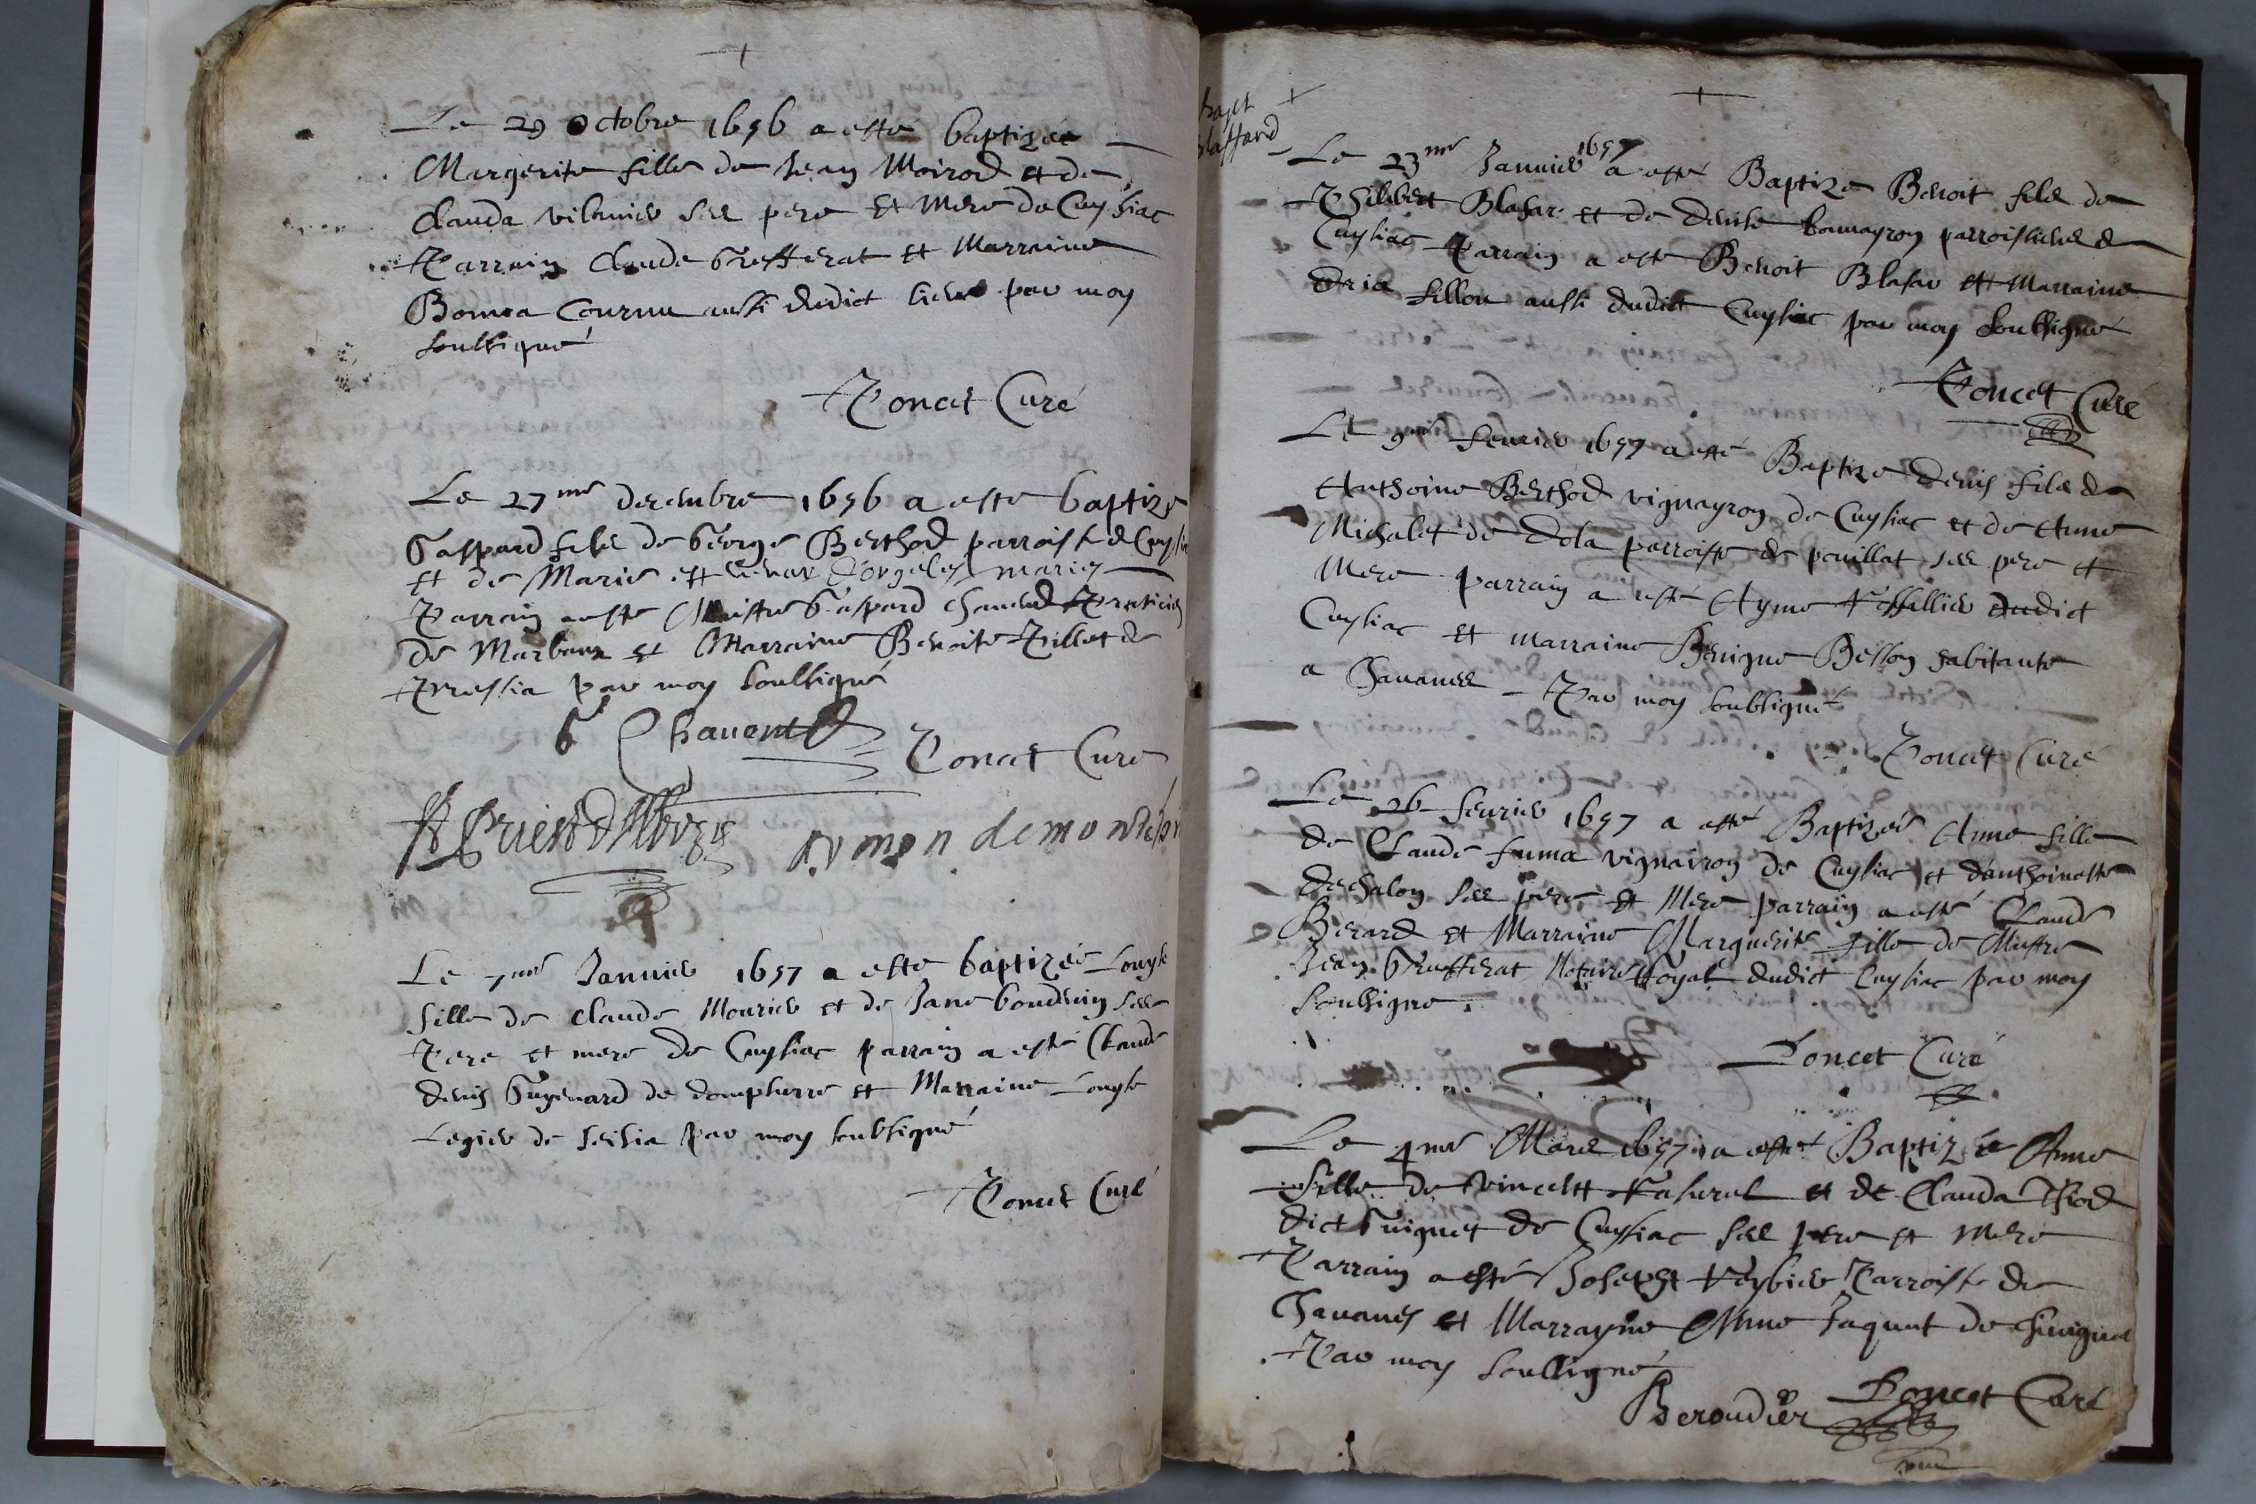 Le 29 octobre 1656 a esté baptizée
Margerite fille de Jean Moirod et de
Clauda vibunier ses pere et mere de Cuysiac
Parrain Claude Grefferat et Marraine
aussi dudict lieu par moy
soubsigné
Poncet Curé
Le 27me decembre 1656 a esté baptize
Gaspard filz de George Berthod parroisse de Cuysia
et de Marie
Parrain a esté Maistre Gaspard Praticien
de et Marraine Benoite Pillot de
Pressia par moy soubsigné
G Chavent
Poncet Curé
Le 7me Janvier 1657 a esté baptizée Louyse
fille de Claude Mourier et de Jane Goudrin ses
Pere et mere de Cuysiac parrain a esté Claude
denis de dompsurre et Marraine Louyse
Legier de par moy soubsigné
Poncet Curé
Le 23me Janvier 1657 a esté Baptize Benoit filz de
Philibert Blafar et de denise parroissiens de
Cuysiac Parrain a esté Benoit Blafar et Marraine
fillon aussi dudict Cuysiac par moy soubsigné
Poncet Curé
Le 9me fevrier 1657 a esté Baptize denis filz de
Anthoine Berthod vignayron de Cuysiac et de Anne
Michalet de dola parroisse de pouillat ses pere et
Mere parrain a esté Ayme dudict
Cuysiac et marraine Benigne Besson habitante
a Chavanes Par moy soubsigné
Poncet Curé
Le 26 fevrier 1657 a esté Baptizée Anne fille
de Claude fuma vignairon de Cuysiac et d'anthoinette
dechalon ses pere et Mere parrain a esté Claude
Berard et Marraine Marguerite fille de Maistre
Jean Grefferat Notaire Royal dudict Cuysiac par moy
soubsigné.
Poncet Curé
Le 4me Mars 1657 a esté Baptizée Anne
fille de Vincent et de Clauda
dict Guignet de Cuysiac ses pere et mere
Parrain a esté Joseph Parroisse de
Chavanes et Marrayne Anne Jaquet de
Par moy soubsigné
Beroudier
Poncet Curé